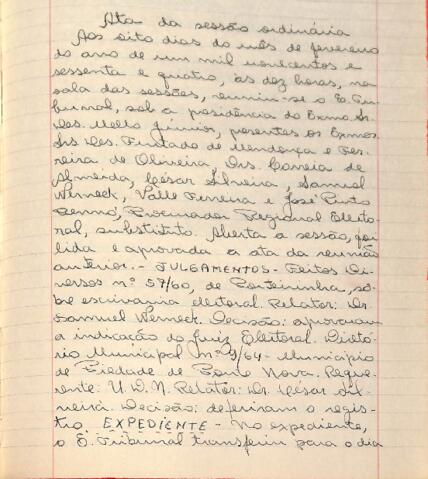 Ata da sessão ordinária
Aos oito dias do mês de fevereiro
do ano de um mil novecentos e
sessenta e quatro, às dez horas, na
sala das sessões, reuniu-se o E. Tri-
bunal, sob a presidência do Exmo. Sr.
Des. Mello Júnior, presentes os Exmos.
Srs. Des. Furtado de Mendonça e Fer-
reira de Oliveira Drs. Correia de
Almeida, César Silveira, Samuel
Werneck, Valle Ferreira e José Pinto
Rennó, Procurador Regional Eleito-
ral, substituto. Aberta a sessão, foi
lida e aprovada a ata da reunião
anterior. - JULGAMENTOS - Feitos Di-
versos nº 57/60, de Porteirinha, sô-
bre escrivania eleitoral. Relator: Dr.
Samuel Werneck. Decisão: aprovaram
a indicação do Juiz Eleitoral. Diretó-
rio Municipal nº 9/64 - Município
de Piedade de Ponte Nova. Reque-
rente: U.D.N. Relator: Dr. César Sil-
veira. Decisão: deferiram o regis-
tro. EXPEDIENTE - No expediente,
o E. Tribunal transferiu para o dia